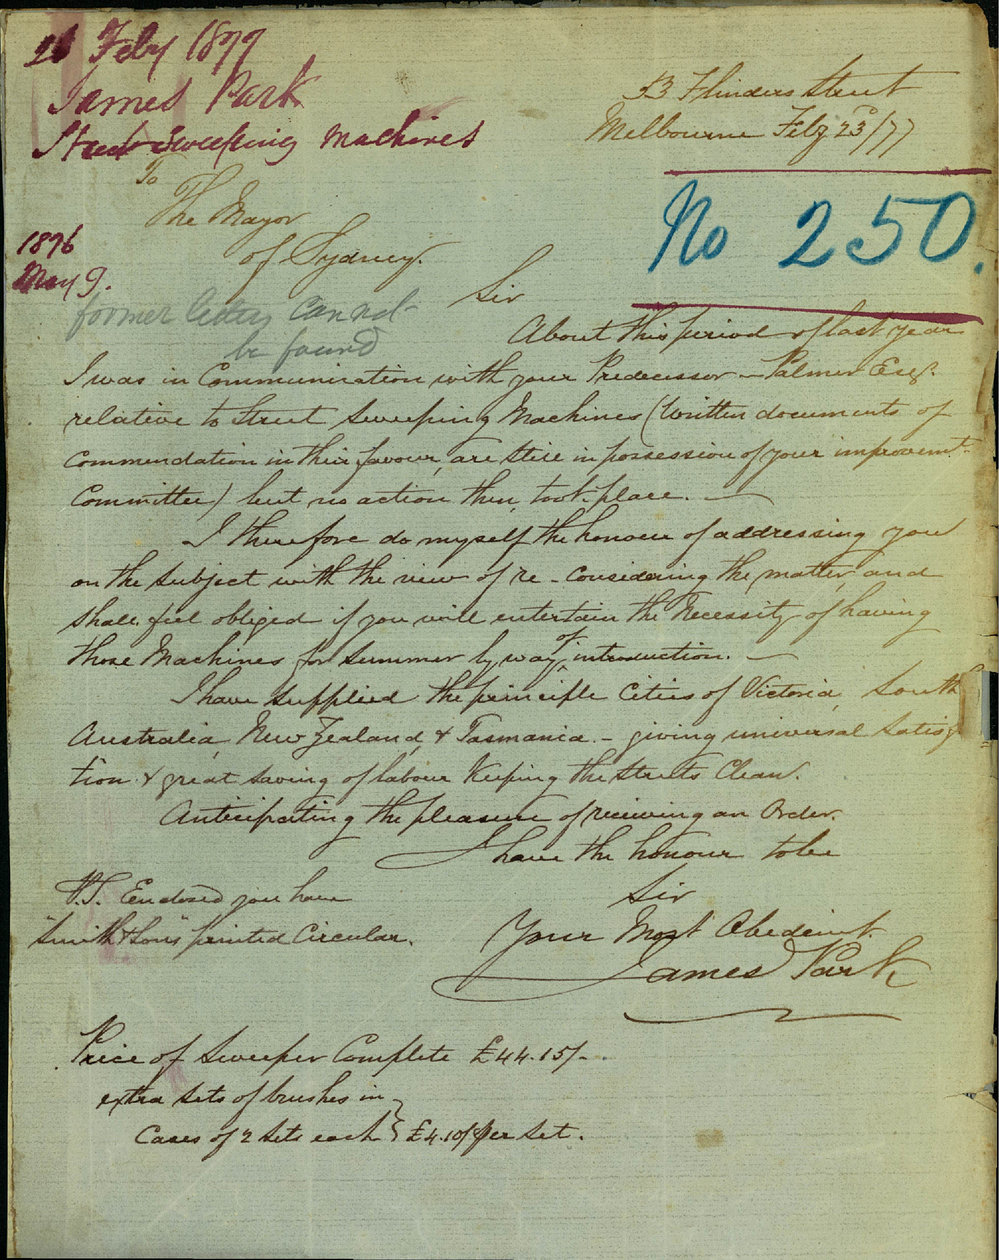 26 Feby 1877
James Park
Street Sweeping Machines
53 Flinders Street
Melbourne Feby 23d/77
No 250.
To
The Mayor
of Sydney.
1876
May 9.
former letters cannot
be found
Sir
About this period of last year
I was in Communication with your Predecessor – Palmer Esqr.
relative to Street Sweeping Machines (written documents of
Commendation in their favour, are still in possession of your improvemt
Committee) but no action then, took place. —
I therefore do myself the honour of addressing you
on the subject with the view of re-considering the matter, and
shall feel obliged if you will entertain the Necessity of having
those Machines for Summer by way of introduction. —
I have supplied the principle Cities of Victoria, South
Australia, New Zealand, & Tasmania. – giving universal Satisf
tion. & great saving of labour Keeping the Streets Clean.
Anticipating the pleasure of receiving an Order.
I have the honour to be
Sir
Your Most Obedient.
James Park
P.S. Enclosed you have
"Smith & Sons" printed Circular.
Price of Sweeper Complete £44.15/-
extra Sets of brushes in
Cases of 2 Sets each } £4.10/ per Set.